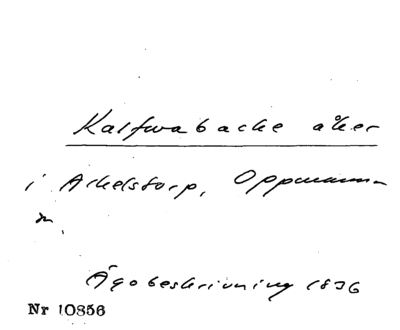 Kalfwabacke åker
i Arkelstorp, Oppmanna
sn.
Ägobeskrivning 1836
Nr 10856